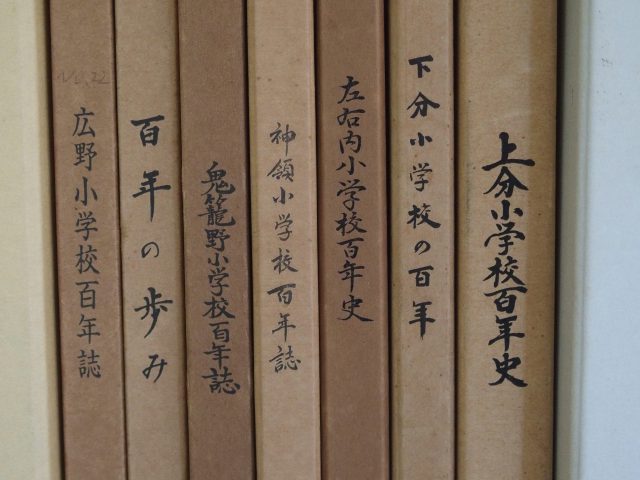 上分小学校百年史
下分小学校の百年
左右内小学校百年史
神領小学校百年誌
鬼籠野小学校百年誌
百年の歩み
No.22
広野小学校百年誌